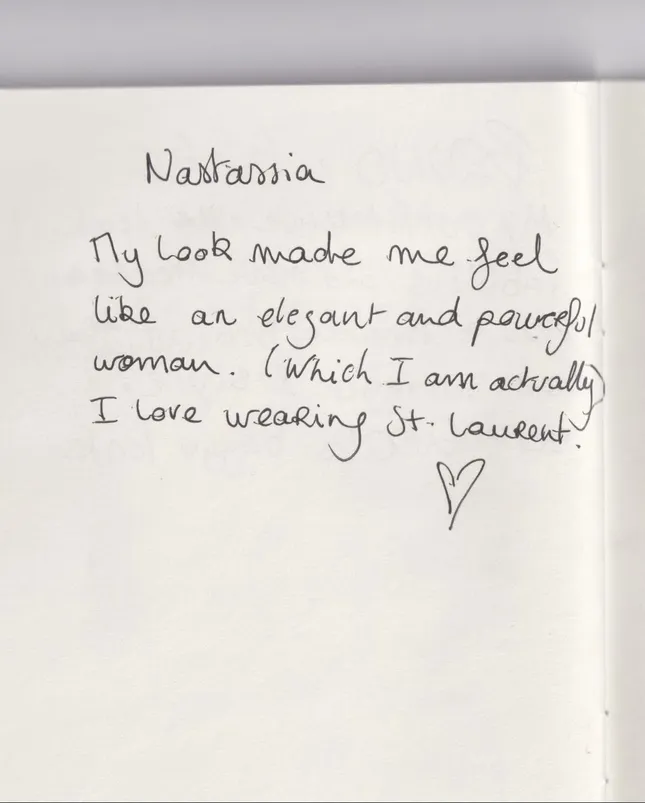 Nastassia
My look made me feel
like an elegant and powerful
woman. (Which I am actually)
I love wearing St. Laurent.